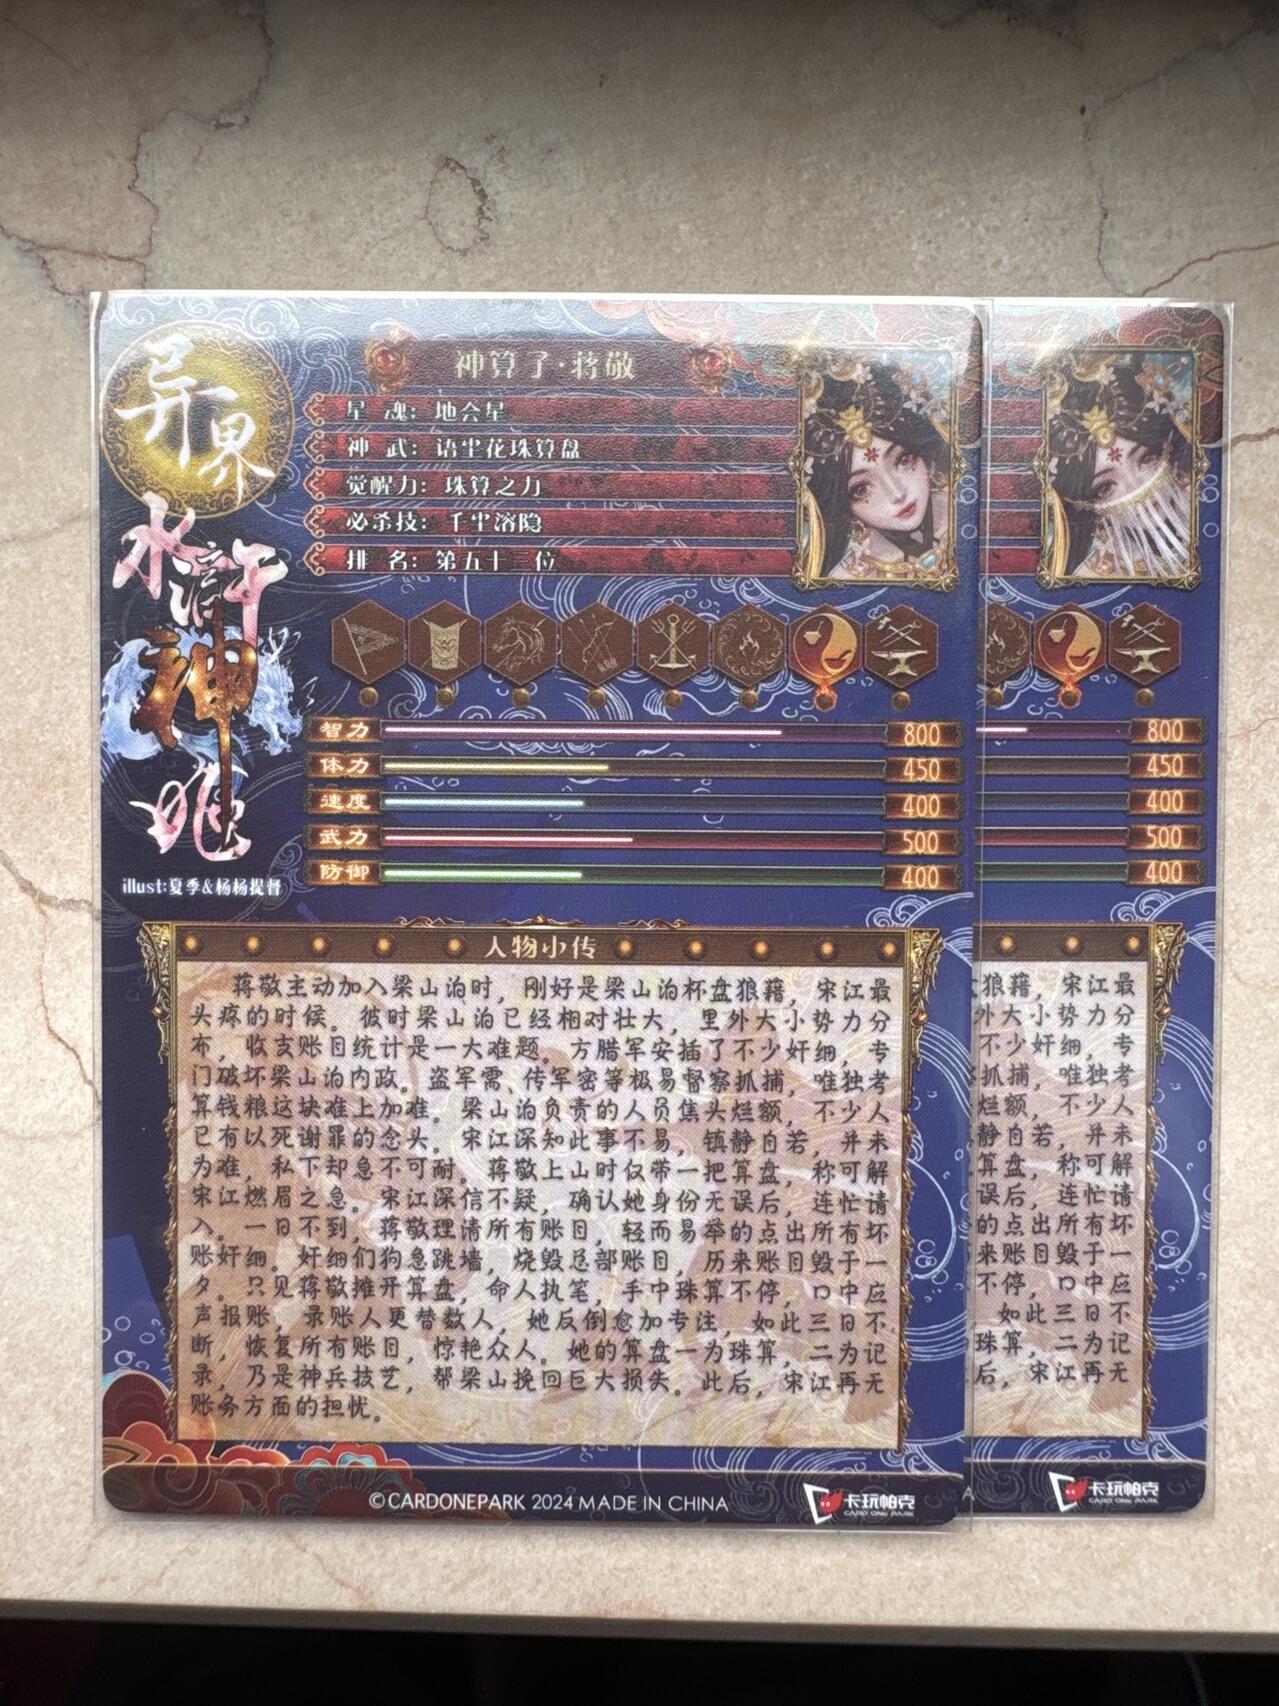 异界
水浒
神魂
illust:夏季&杨杨提督
神算子·蒋敬
星 魂：地会星
神 武：语尘花珠算盘
觉醒力：珠算之力
必杀技：千尘溶隐
排 名：第五十三位
智力 800
体力 450
速度 400
武力 500
防御 400
人物小传
蒋敬主动加入梁山泊时，刚好是梁山泊杯盘狼藉，宋江最
头疼的时候。彼时梁山泊已经相对壮大，里外大小势力分
布，收支账目统计是一大难题。方腊军安插了不少奸细，专
门破坏梁山泊内政。盗军需、传军密等极易督察抓捕，唯独考
算钱粮这块难上加难。梁山泊负责的人员焦头烂额，不少人
已有以死谢罪的念头。宋江深知此事不易，镇静自若，并未
为难，私下却急不可耐。蒋敬上山时仅带一把算盘，称可解
宋江燃眉之急。宋江深信不疑，确认她身份无误后，连忙请
入。一日不到，蒋敬理清所有账目，轻而易举的点出所有坏
账奸细。奸细们狗急跳墙，烧毁总部账目，历来账目毁于一
夕。只见蒋敬摊开算盘，命人执笔，手中珠算不停，口中应
声报账，录账人更替数人，她反倒愈加专注，如此三日不
断，恢复所有账目，惊艳众人。她的算盘一为珠算，二为记
录，乃是神兵技艺，帮梁山挽回巨大损失。此后，宋江再无
账务方面的担忧。
©CARDONEPARK 2024 MADE IN CHINA
卡玩帕克
CARD ONE PARK
800
450
400
500
400
狼藉，宋江最
外大小势力分
不少奸细，专
抓捕，唯独考
烂额，不少人
静自若，并未
算盘，称可解
误后，连忙请
的点出所有坏
来账目毁于一
不停，口中应
如此三日不
珠算，二为记
后，宋江再无
A
卡玩帕克
CARD ONE PARK